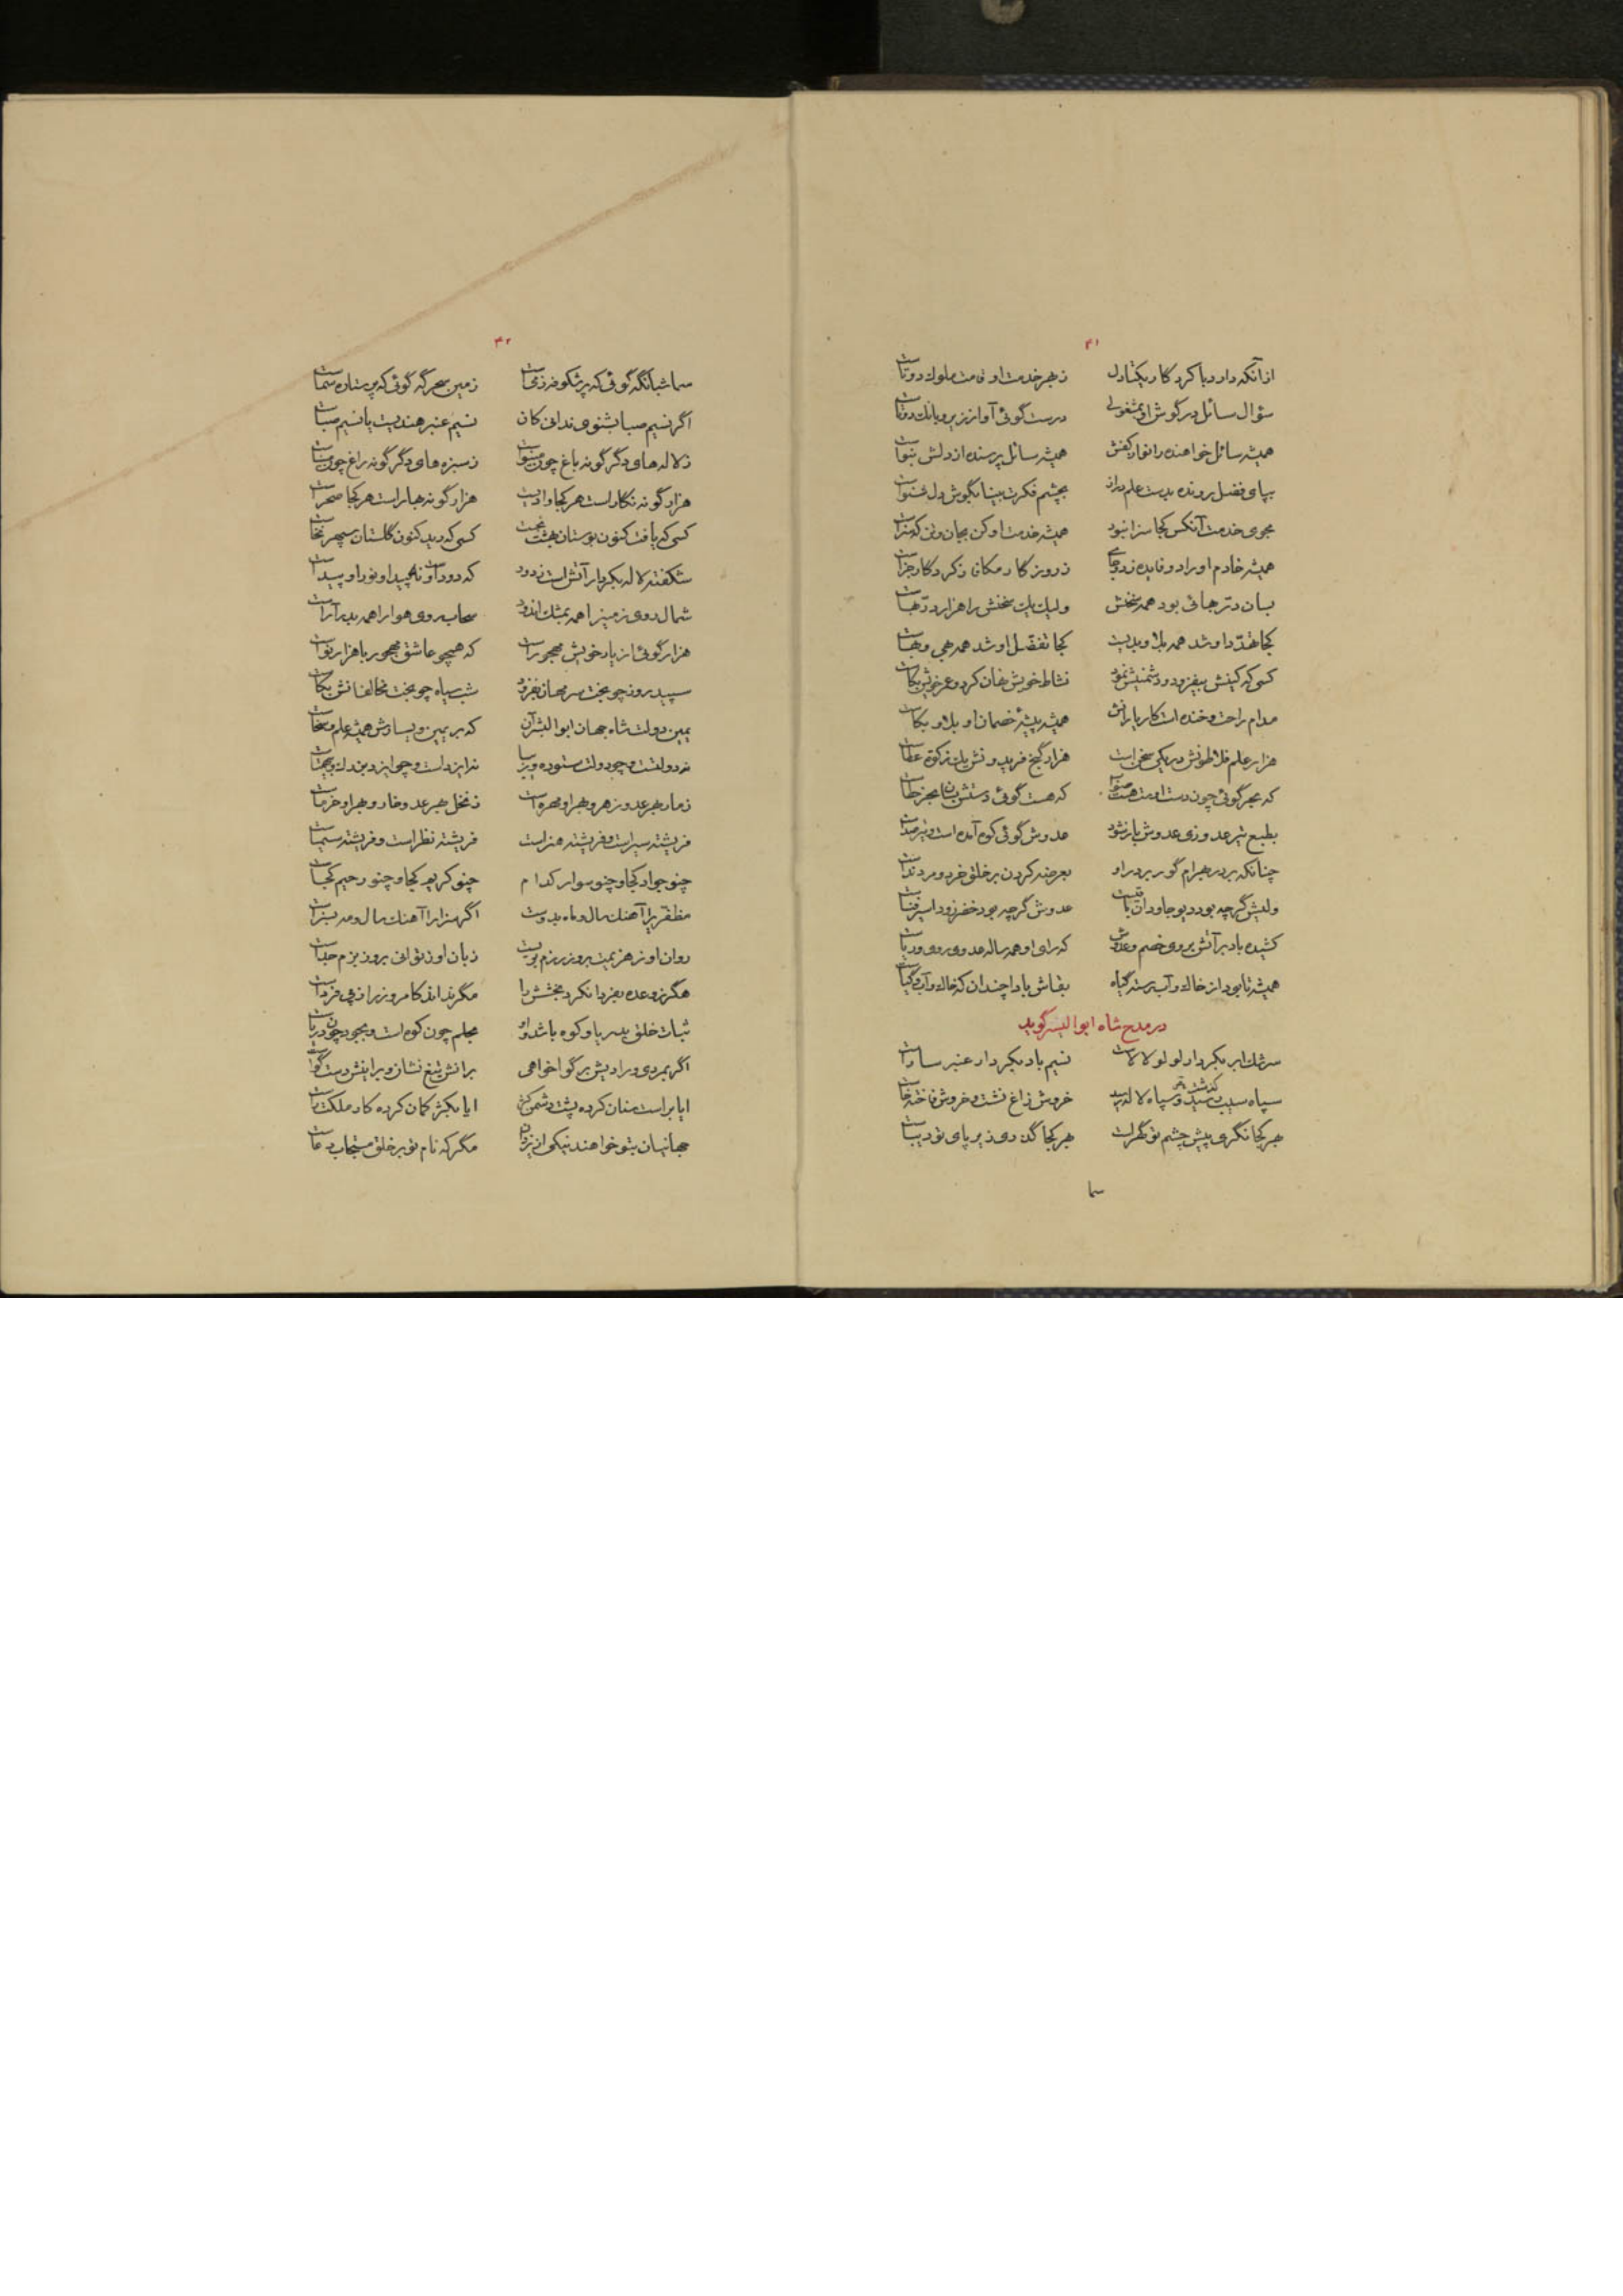 ۴۱
ازآنکه دارد با کردکار یکتا دل زبهر خدمت او قامت ملوک دوتاست
سؤال سائل در گوش او بمشغولی درست گوئی آواز زیر و بانک دوتاست
همیشه سائل خواهنده را نوا زکفش همیشه سائل پرسنده از دلش بنواست
بپای فضل رونده بدست علم دراز بچشم فکرت بینا بگوش دل شنواست
مجوی خدمت آنکس کجا سزا نبود همیشه خدمت او کن بجان و تن که سزاست
همیشه خادم او را دو فایده زدو جای ز روزگار مکافا زکردکار جزاست
بسان در جهانی بود همه سخنش ولیک یک سخنش را هزار در بهاست
کجا تهدد او شد همه بلا و بدیست کجا تفضل او شد همه بهی و بهاست
کسی که کینش بیفزود و دشمنیش نمود نشاط خویش نهان کرد و عمر خویش بکاست
مدام راحت و خنده است کار یارانش همیشه پیشه خصمان او بلا و بکاست
هزار علم فلاطونش در یکی سخن است هزار گنج فریدونش یک زکوة عطاست
که بحر گوئی چون دست اوست هست صواب که هست گوئی دستش بسان بحر خطاست
بطبع تیر عدو زی عدوش باز شود عدوش گوئی کوه آمده است و تیر صداست
چنانکه بر در بهرام گور بر در او بعرضه کردن بر خلق خرد و مرد نداست
ولیش گرچه بود دیو جاودان باقیست عدوش گرچه بود خضر زود اسیر فناست
کشیده باد بر آتش بروی خصم و عدوش که رای او همه ساله عدوی روی و ریاست
همیشه تا بود از خاک و آب رسته گیاه بقاش بادا چندان که خاک و آب و گیاست
در مدح شاه ابوالیسر گوید
سرشک ابر بکردار لولو لالاست نسیم باد بکردار عنبر ساراست
سپاه سیب گذشت و رسید سپاه لاله خروش زاغ نشست و خروش فاخته خاست
بهر کجا نگری پیش چشم تو گهر است بهر کجا گذری زیر پای تو دیباست
سما
۴۲
سما شبانگه گوئی که پر شکوفه زمیست زمین سحرگه گوئی که پر ستاره سماست
اگر نسیم صبا بشنوی ندانی کان نسیم عنبر هندیست یا نسیم صباست
ز لاله های دگرگونه باغ چون مینوست ز سبزه های دگرگونه راغ چون میناست
هزار گونه نگار است هر کجا وادیست هزار گونه بهار است هر کجا صحراست
کسی که یافت کنون بوستان بهشت نجست کسی که دید کنون گلستان سپهر نخواست
شکفته لاله بکردار آتش است ز دود که دود او ناپیدا و نور او پیداست
شمال روی زمین را همه بمشک اندود سحاب روی هوا را همه بدر آراست
هزار گوئی از یار خویش مهجور است که همچو عاشق مهجور با هزار نواست
سپید روز چو بخت سر مهان بفزود شب سیاه چو بخت مخالفانش بکاست
یمین دولت شاه جهان ابوالیسر آن که بر یمین و یسارش همیشه علم و سخاست
نه دولتست و چو دولت ستوده و زیباست نه ایزد است و چو ایزد بفدرت و بهتاست
ز مار بهر عدو زهر و بهر او مهره است ز نخل بهر عدو خار و بهر او خرماست
فریشته سیر است و فریشته هنر است فریشته نظر است و فریشته سیماست
چنو جواد کجا و چنو سوار کدام چنو کریم کجا و چنو رحیم کجاست
مظفری را آهنک سال و ماه بدوست اگر سزا را آهنک سال و مه بسزاست
روان او ز هزیمت بروز رزم بریست زبان او ز توانی بروز بزم جداست
هگرز وعده بفردا نکرد بخشش را مگر نداند کامروز را ز پی فرداست
ثبات خلق بدریا و کوه باشد و او بحلم چون کوه است و بجود چون دریاست
اگر بمردی و رادیش بر گوا خواهی برانش تیغ نشان و برینش دست گواست
ایا براست سنان کرده پشت دشمن کژ ایا بکژ کمان کرده کار ملکت راست
جهانیان بتو خواهند نیکی از یزدان مگر که نام تو بر خلق مستجاب دعاست